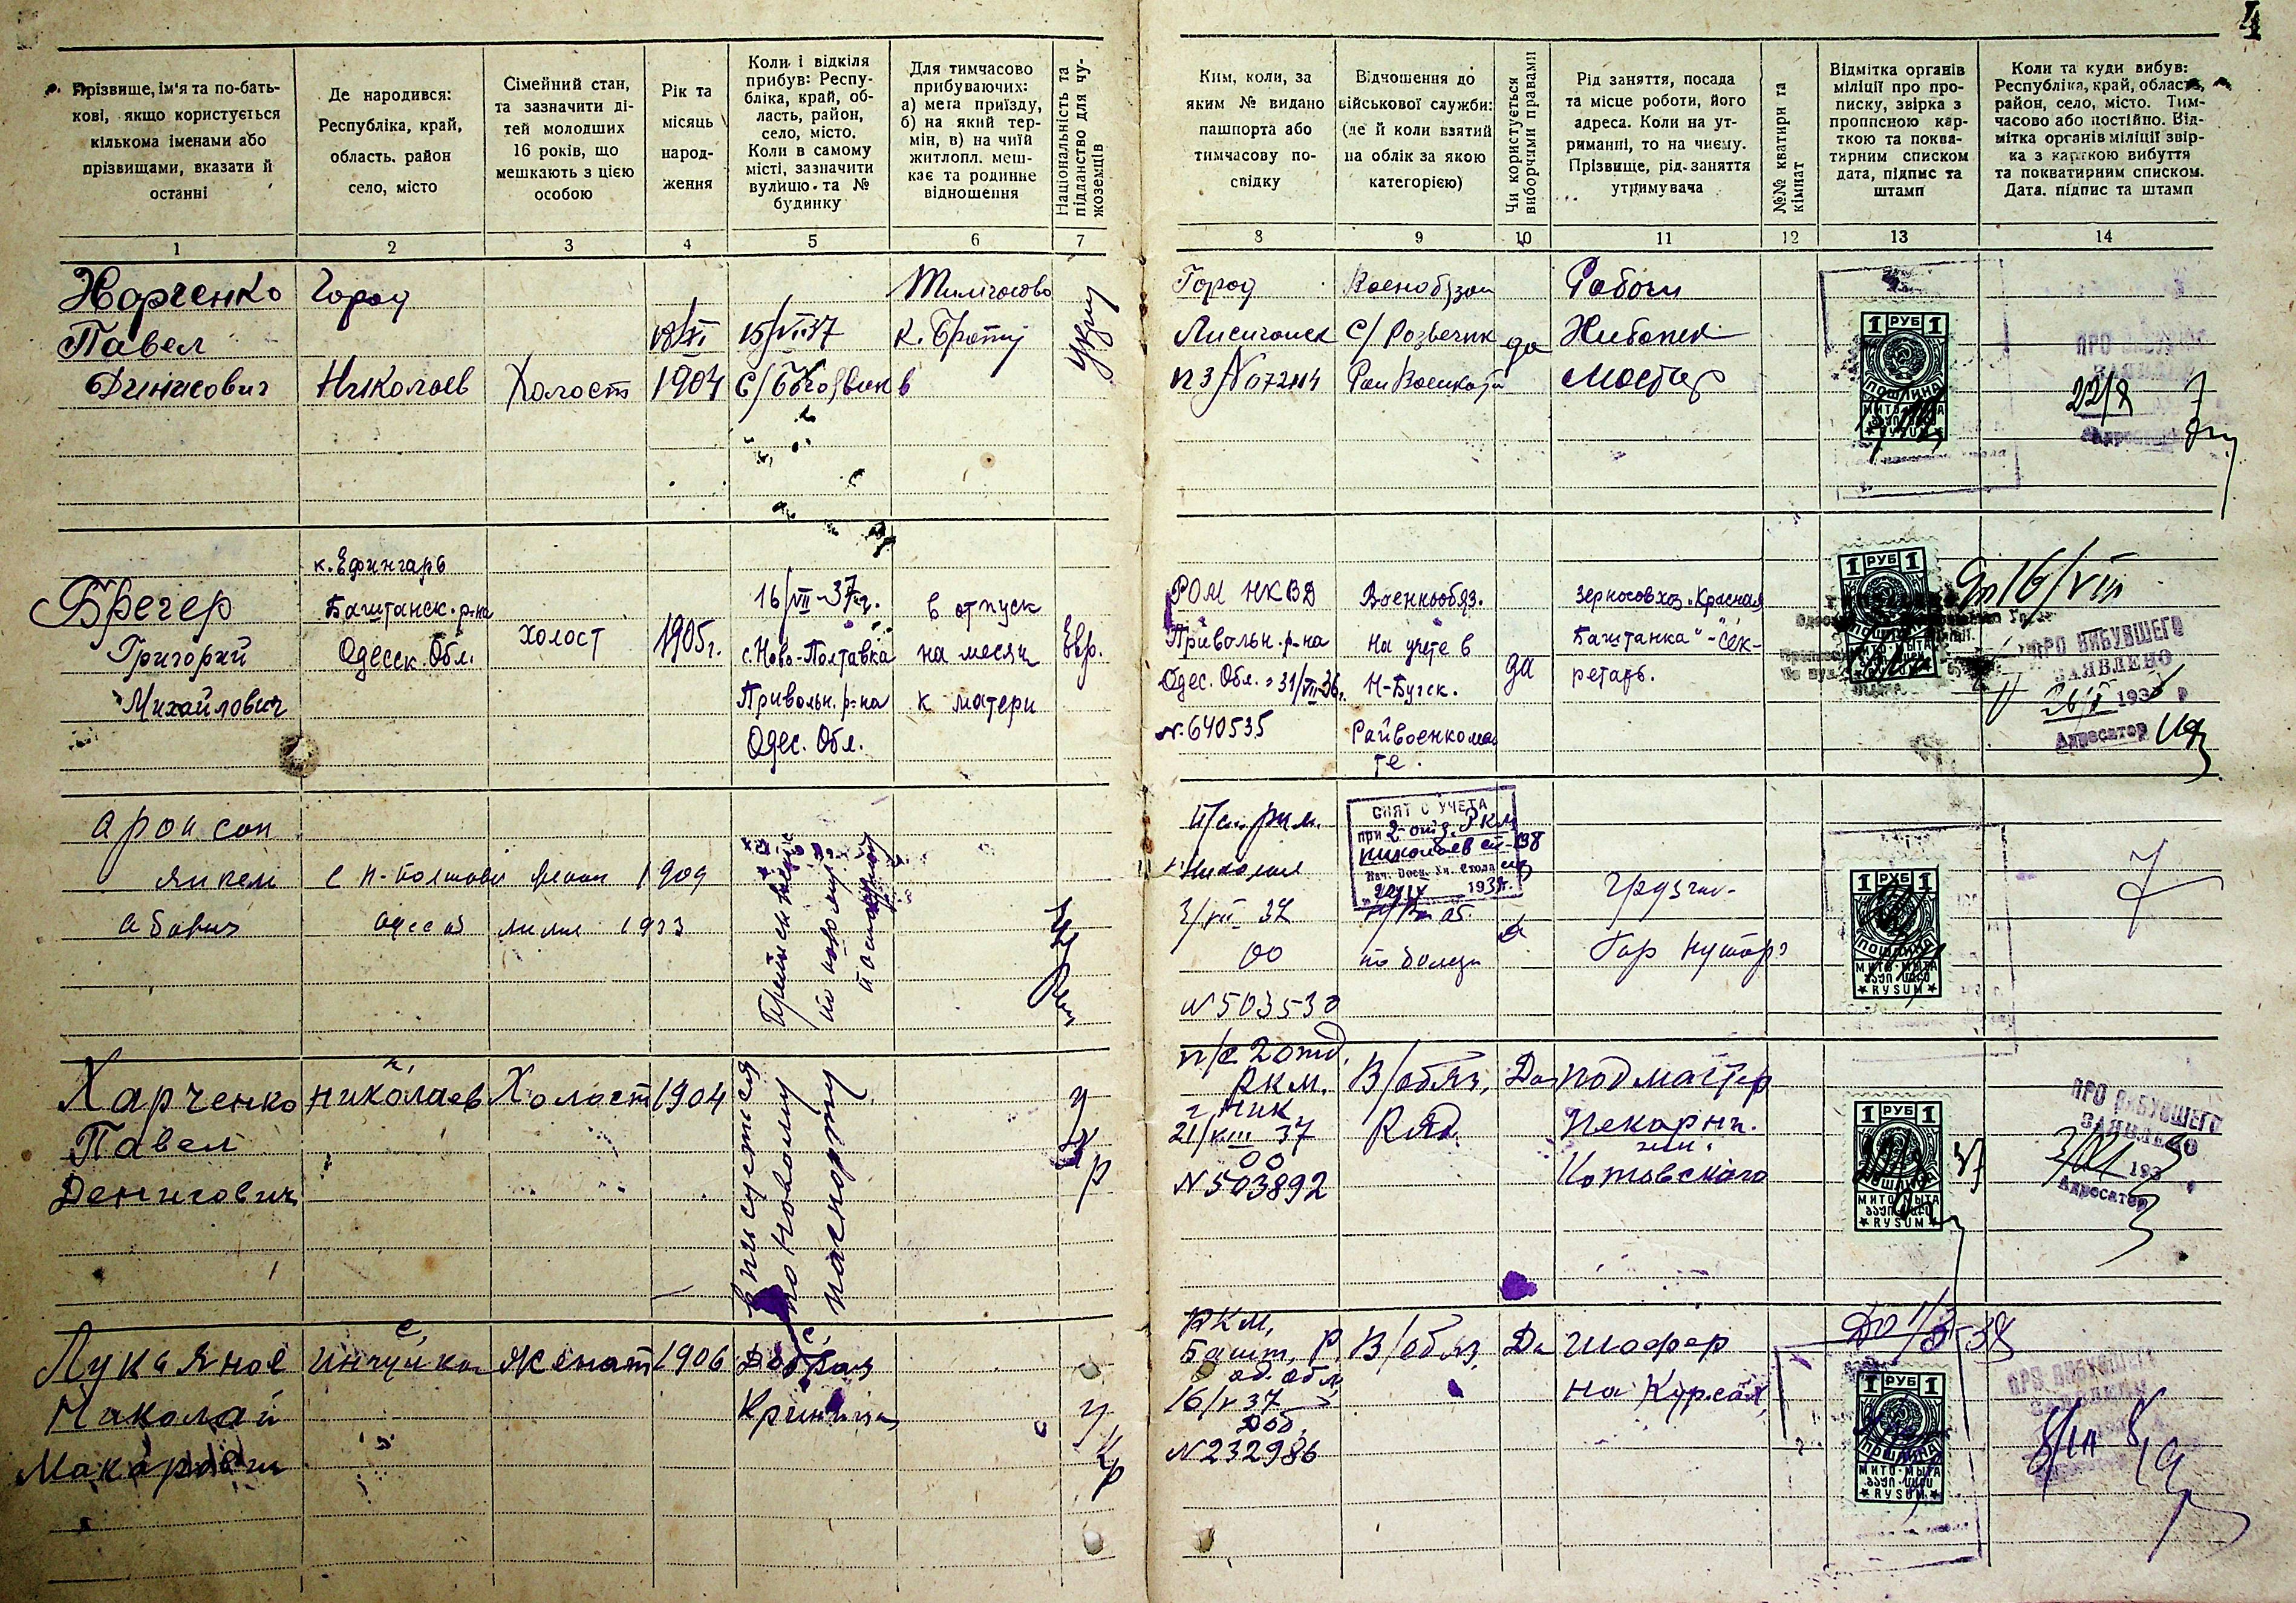 4
Прізвище, ім'я та по-бать-
кові, якщо користується
кількома іменами або
прізвищами, вказати й
останні
Де народився:
Республіка, край,
область. район
село, місто
Сімейний стан,
та зазначити ді-
тей молодших
16 років, що
мешкають з цією
особою
Рік та
місяць
народ-
ження
Коли і відкіля
прибув: Респу-
бліка, край, об-
ласть, район,
село, місто.
Коли в самому
місті, зазначити
вулицю та №
будинку
Для тимчасово
прибуваючих:
а) мета приїзду,
б) на який тер-
мін, в) на чиїй
житлопл. меш-
кає та родинне
відношення
Національність та
підданство для чу-
жоземців
Ким, коли, за
яким № видано
пашпорта або
тимчасову по-
свідку
Відношення до
військової служби:
(де й коли взятий
на облік за якою
категорією)
Чи користується
виборчими правами
Рід заняття, посада
та місце роботи, його
адреса. Коли на ут-
риманні, то на чиєму.
Прізвище, рід. заняття
утримувача
№№ кватири та
кімнат
Відмітка органів
міліції про про-
писку, звірка з
пропісною кар-
ткою та поква-
тирним списком
дата, підпис та
штамп
Коли та куди вибув:
Республіка, край, область,
район, село, місто. Тим-
часово або постійно. Від-
мітка органів міліції звір-
ка з карткою вибуття
та покватирним списком.
Дата. підпис та штамп
1 2 3 4 5 6 7 8 9 10 11 12 13 14
Харченко
Павел
Динисович
Город
Николаев
Холост
1904
15/VI-37
Город
Лисичанск
да
1 РУБ 1
ПОШЛИНА
RYSUM
ПРО ВИБУВШЕГО
ЗАЯВЛЕНО
22/8
Брегер
Григорий
Михайлович
к. Ефингарь
Баштанск. р-на
Одесск. Обл.
холост
1905г.
16/VII-37г.
с. Ново-Полтавка
Привольн. р-на
Одес. Обл.
в отпуск
на месяц
к матери
Евр.
РОМ НКВД
Привольн. р-на
Одес. Обл. 31/VII-36г.
N. 640535
Военнообяз.
На учете в
Н-Бугск.
Райвоенкома
те.
да
Зерносовхоз „Красная
Баштанка" - Сек-
ретарь.
1 РУБ 1
До 16/VIII
ПРО ВИБУВШЕГО
ЗАЯВЛЕНО
193
Адресатор
Аронсон
Янкель
Абович
1909
Лиля 1933
по новому
N 503530
СНЯТ С УЧЕТА
при 2 отд. РКМ
Николаев
Нач. Воен. Уч. Стола
193
грузчи-
1 РУБ 1
ПОШЛИНА
МИТО·МЫТА
★RYSUM★
Харченко
Павел
Денисович
г.
Николаев
Холост
1904
вписуется
по новому
паспорту
Укр
п/с 2 отд.
РКМ.
г. Ник
21/VIII 37
00
N 503892
В/обяз.
Ряд.
Да
подмастер
Пекарни.
им.
Котовского
1 РУБ 1
ПОШЛИНА
МИТО·МЫТА
★RYSUM★
ПРО ВИБУВШЕГО
ЗАЯВЛЕНО
193
Адресатор
Лукьянов
Николай
Макарович
с.
Женат
1906
с.
Добрая
Криница
Укр
РКМ,
Башт. р.
од. обл.
16/V 37
Доб.
N 232986
В/обяз.
Да
шофер
на курсах
До 1/3-38
1 РУБ 1
ПОШЛИНА
МИТО·МЫТА
★RYSUM★
ПРО ВИБУВШЕГО